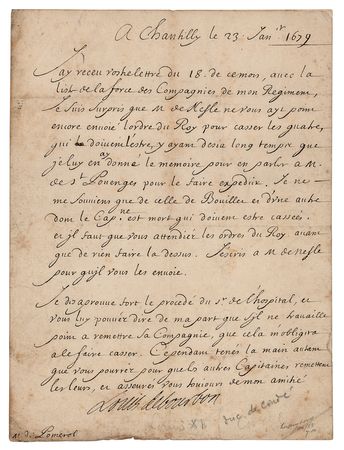 A Chantilly le 23 Janr 1679
J'ay receu vostre lettre du 18. de ce mois, avec la
liste de la force des Compagnies de mon Regiment,
Je suis surpris que M. de Nesle ne vous ayt point
encore envoié l'ordre du Roy pour casser les quatre,
qui le doivent estre, y ayant desia long temps que
je luy en ay donné le memoire pour en parler a M.
de St. Pouenges pour le faire expedier. Je ne
me souviens que de celle de Bouiller et d'une autre
dont le Capne est mort qui doivent estre cassées.
et il faut que vous attendiez les ordres du Roy avant
que de rien faire la dessus. J'escris a M. de Nesle
pour qu'il vous les envoie.
Je desaprouve fort le procedé du Sr. de l'hospital, et
vous luy pouvez dire de ma part que s'il ne travaille
point a remettre sa Compagnie, que cela m'obligera
a le faire casser. Cependant tenez la main autant
que vous pourrez pour que les autres Capitaines remettent
les leurs, et asseurez vous toujours de mon amitié
Louis de bourbon
duc de Condé
Mr. de Pomerol